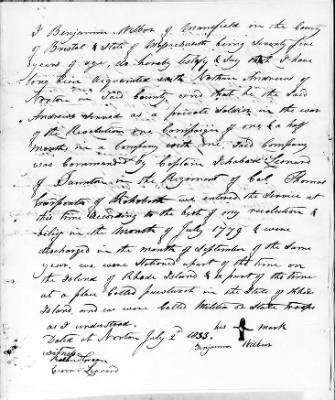 I Benjamin Wilbor of Mansfield in the County
of Bristol & State of Massachusetts being seventy five
years of age, do hereby testify & say that I have
long been acquainted with Nathan Andrews of
Norton in said County and that he the said
Andrews served as a private soldier in the war
of the Revolution one Campaign of one & a half
month, in a Company with me, said Company
was Commanded by Captain Ichabod Leonard
of Taunton in the Regiment of Col. Thomas
Carpenter of Rehoboth we entered the service at
this time according to the best of my recolection &
belief in the month of July 1779 & were
discharged in the month of September of the same
year, we were stationed apart of the time on
the Island of Rhode Island & a part of the time
at a place Called in the State of Rhode
Island, and we were Called Militia or State troops
as I understood.
Dated at Norton July 2d 1833. his mark
witness Benjamin Wilbur
Leonard